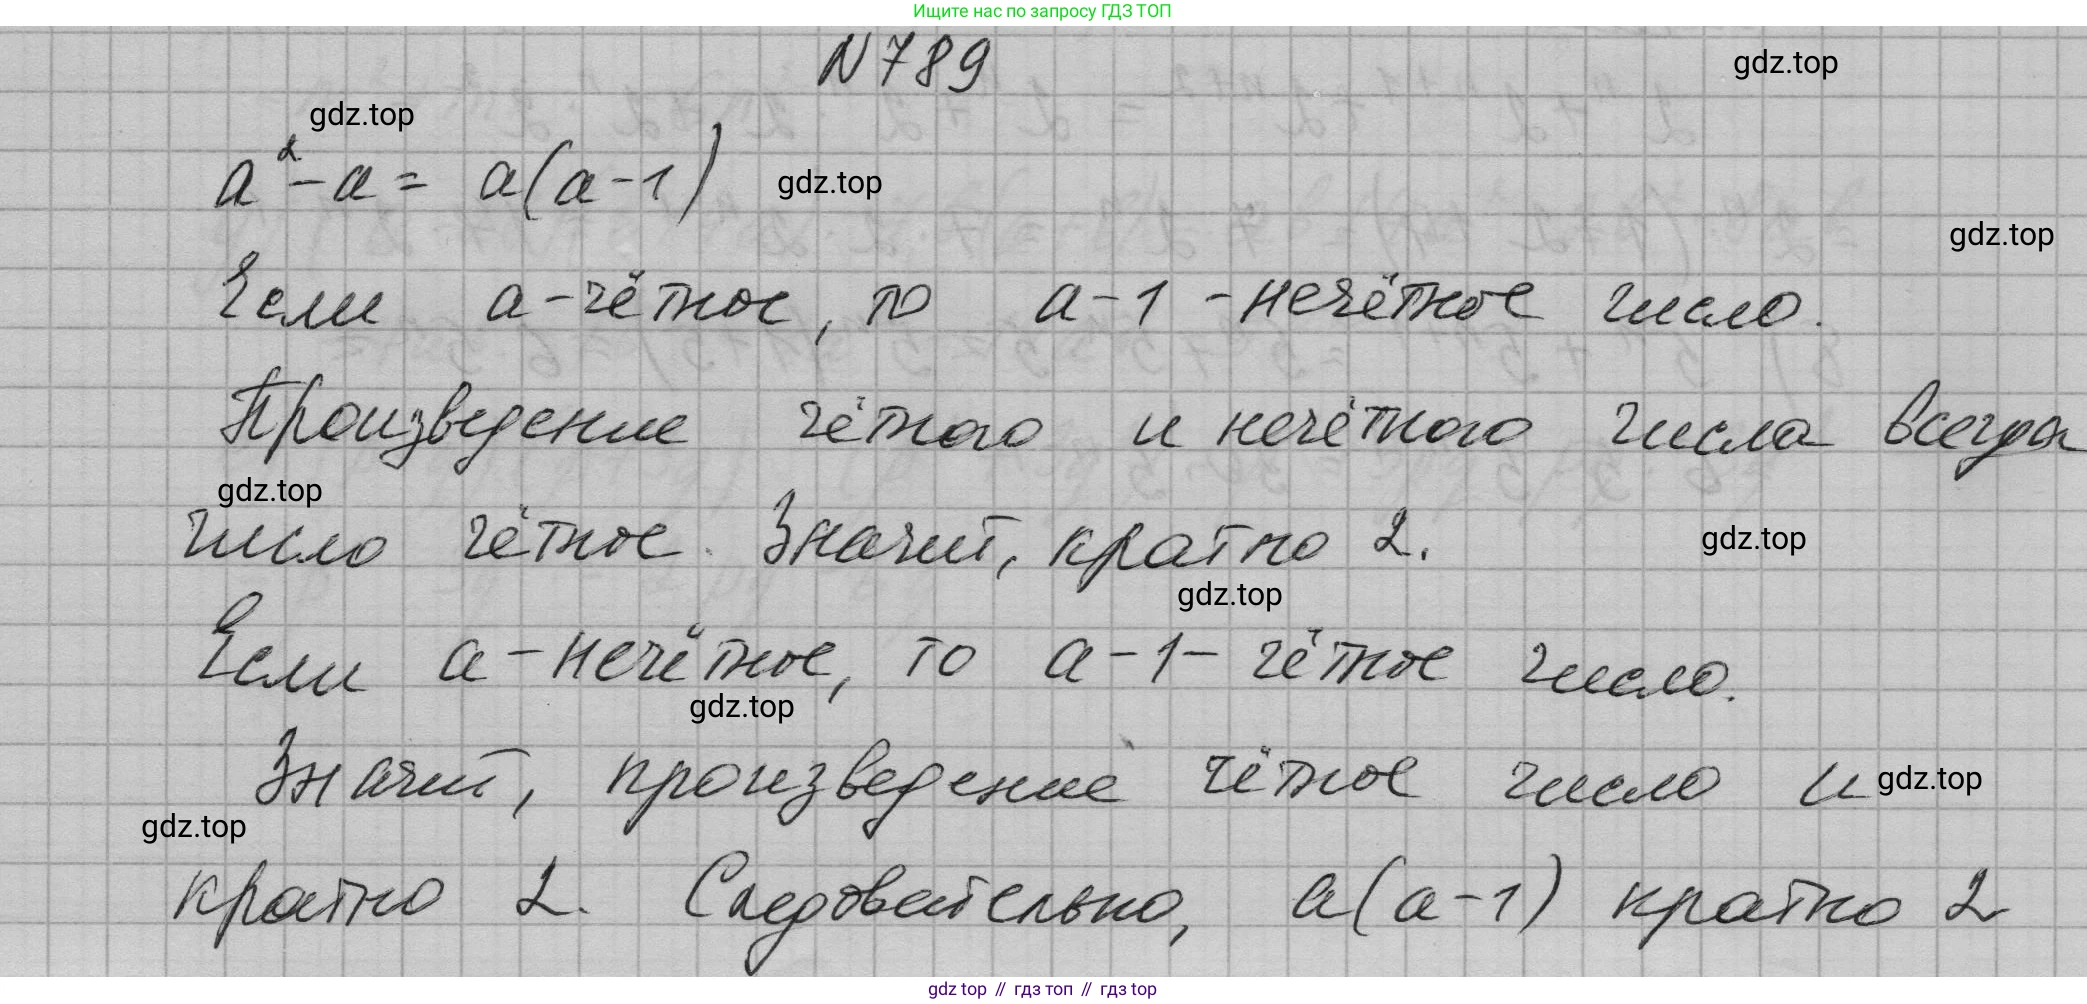 Ищите нас по запросу ГДЗ ТОП
N 789
gdz.top
gdz.top
a² - a = a(a-1)
gdz.top
gdz.top
Если a - чётное, то a-1 - нечётное число.
Произведение чётного и нечётного числа всегда
gdz.top
число чётное. Значит, кратно 2.
gdz.top
gdz.top
Если a - нечётное, то a-1 - чётное число.
gdz.top
Значит, произведение чётное число и
gdz.top
gdz.top
кратно 2. Следовательно, a(a-1) кратно 2
gdz top // гдз топ // gdz top